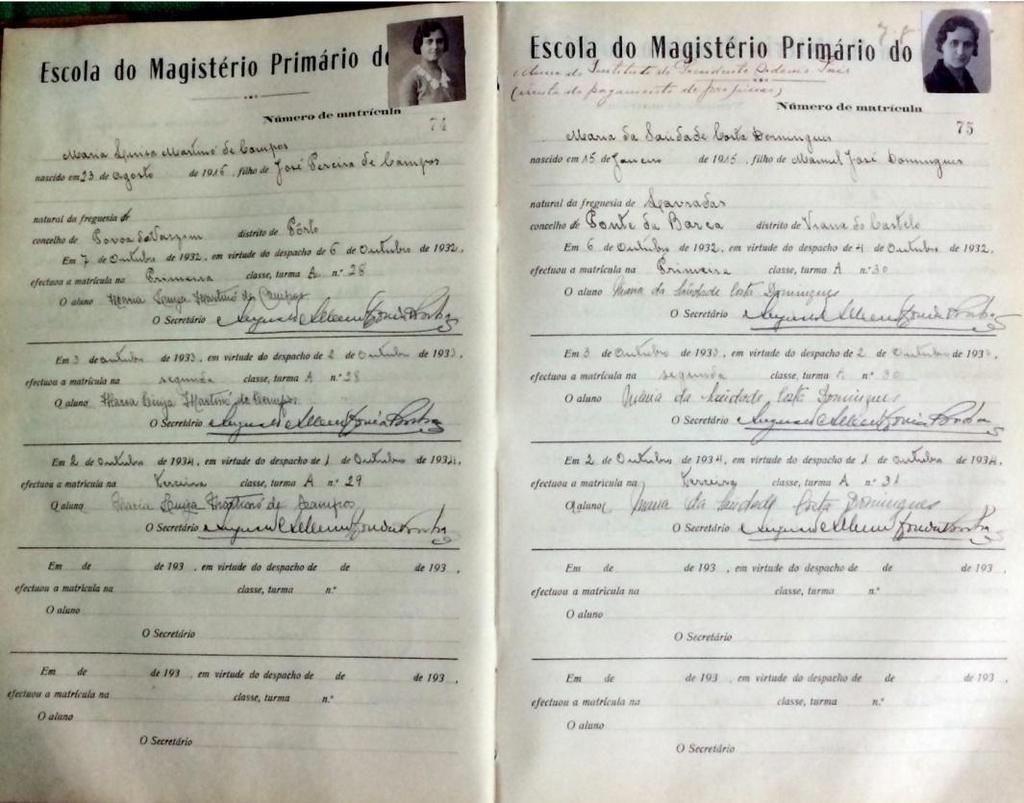 Escola do Magistério Primário do
Número de matrícula
74
Maria Luiza Martins de Campos
nascido em 23 de Agosto de 1916, filho de José Pereira de Campos
natural da freguesia de
concelho de Povoa de Varzim distrito de Pôrto
Em 7 de Outubro de 1932, em virtude do despacho de 6 de Outubro de 1932,
efectuou a matrícula na Primeira classe, turma A n.º 28
O aluno Maria Luiza Martins de Campos
O Secretário
Em 3 de Outubro de 1933, em virtude do despacho de 2 de Outubro de 1933,
efectuou a matrícula na segunda classe, turma A n.º 28
O aluno Maria Luiza Martins de Campos
O Secretário
Em 2 de Outubro de 1934, em virtude do despacho de 1 de Outubro de 1934,
efectuou a matrícula na terceira classe, turma A n.º 29
O aluno Maria Luiza Martins de Campos
O Secretário
Em de de 193 , em virtude do despacho de de de 193 ,
efectuou a matrícula na classe, turma n.º
O aluno
O Secretário
Em de de 193 , em virtude do despacho de de de 193 ,
efectuou a matrícula na classe, turma n.º
O aluno
O Secretário
Escola do Magistério Primário do
Aluna do Instituto do Presidente Sidonio Pais
(isenta do pagamento de propinas)
Número de matrícula
75
Maria da Saúdade Costa Domingues
nascido em 15 de Janeiro de 1915, filho de Manuel José Domingues
natural da freguesia de Lavradas
concelho de Ponte da Barca distrito de Viana do Castelo
Em 6 de Outubro de 1932, em virtude do despacho de 4 de Outubro de 1932,
efectuou a matrícula na Primeira classe, turma A n.º 30
O aluno Maria da Saúdade Costa Domingues
O Secretário
Em 3 de Outubro de 1933, em virtude do despacho de 2 de Outubro de 193 ,
efectuou a matrícula na segunda classe, turma A n.º 30
O aluno Maria da Saúdade Costa Domingues
O Secretário
Em 2 de Outubro de 1934, em virtude do despacho de 1 de Outubro de 1934,
efectuou a matrícula na terceira classe, turma A n.º 31
O aluno Maria da Saúdade Costa Domingues
O Secretário
Em de de 193 , em virtude do despacho de de de 193 ,
efectuou a matrícula na classe, turma n.º
O aluno
O Secretário
Em de de 193 , em virtude do despacho de de de 193 ,
efectuou a matrícula na classe, turma n.º
O aluno
O Secretário